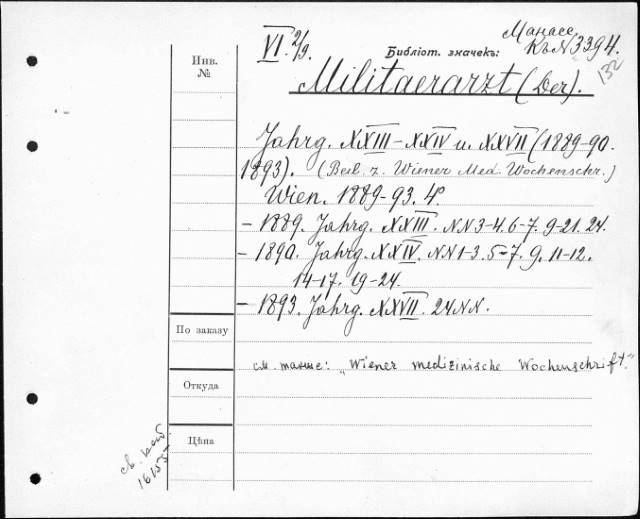 Манасе
VI. 2/9. Библіот. значекъ: Къ N 3394.
132
Инв.
№
Militaerarzt (Der).
Jahrg. XXIII–XXIV u. XXVII (1889-90.
1893). (Beil. z. Wiener Med. Wochenschr.)
Wien. 1889-93. 4°.
– 1889. Jahrg. XXIII. NN 3-4. 6-7. 9-21. 24.
– 1890. Jahrg. XXIV. NN 1-3. 5-7. 9. 11-12.
14-17. 19-24.
– 1893. Jahrg. XXVII. 24 NN.
По заказу
см. также: „Wiener medizinische Wochenschrift."
Откуда
Цѣна
св. каб